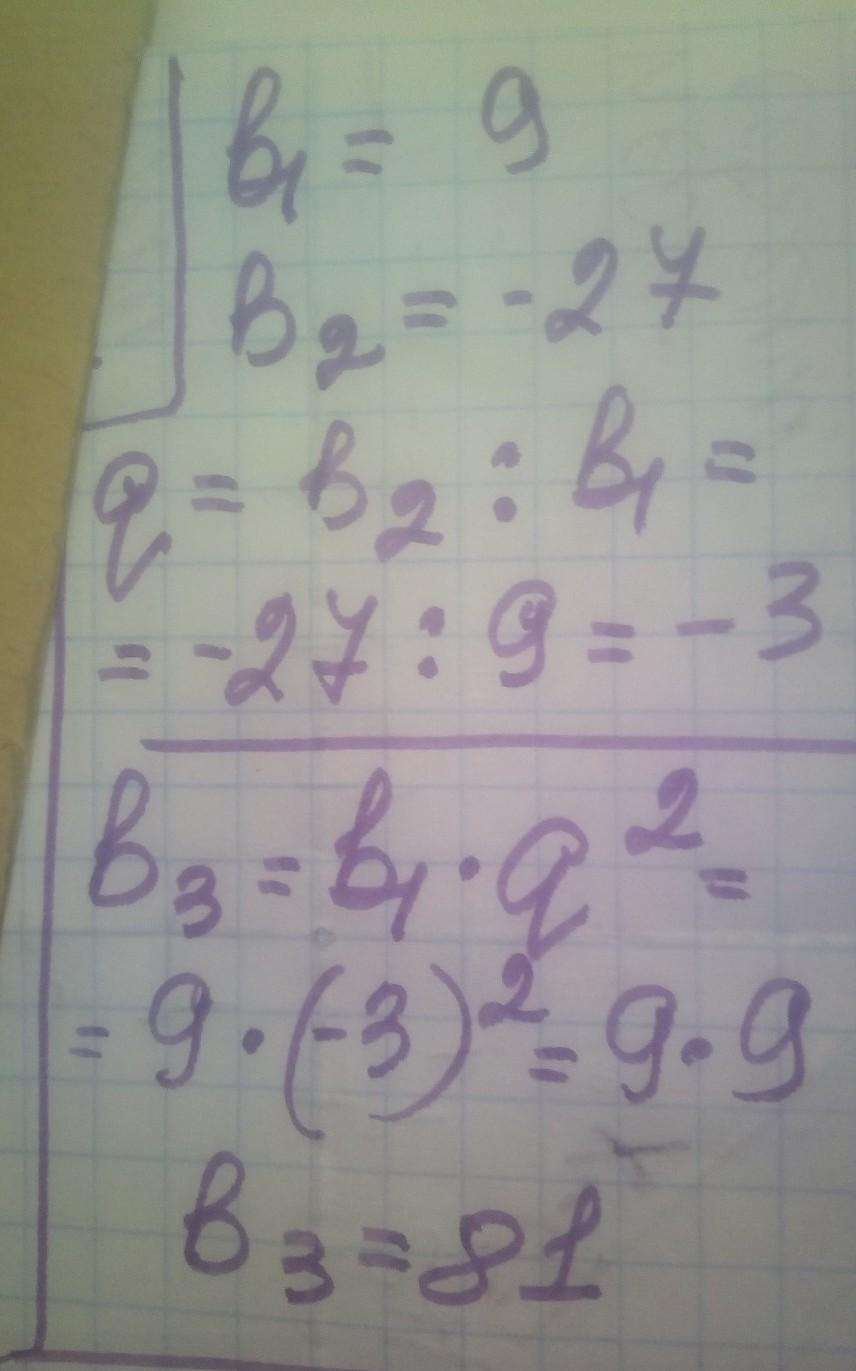 b₁ = 9
b₂ = -27
q = b₂ : b₁ =
= -27 : 9 = -3
b₃ = b₁ · q² =
= 9 · (-3)² = 9 · 9
b₃ = 81